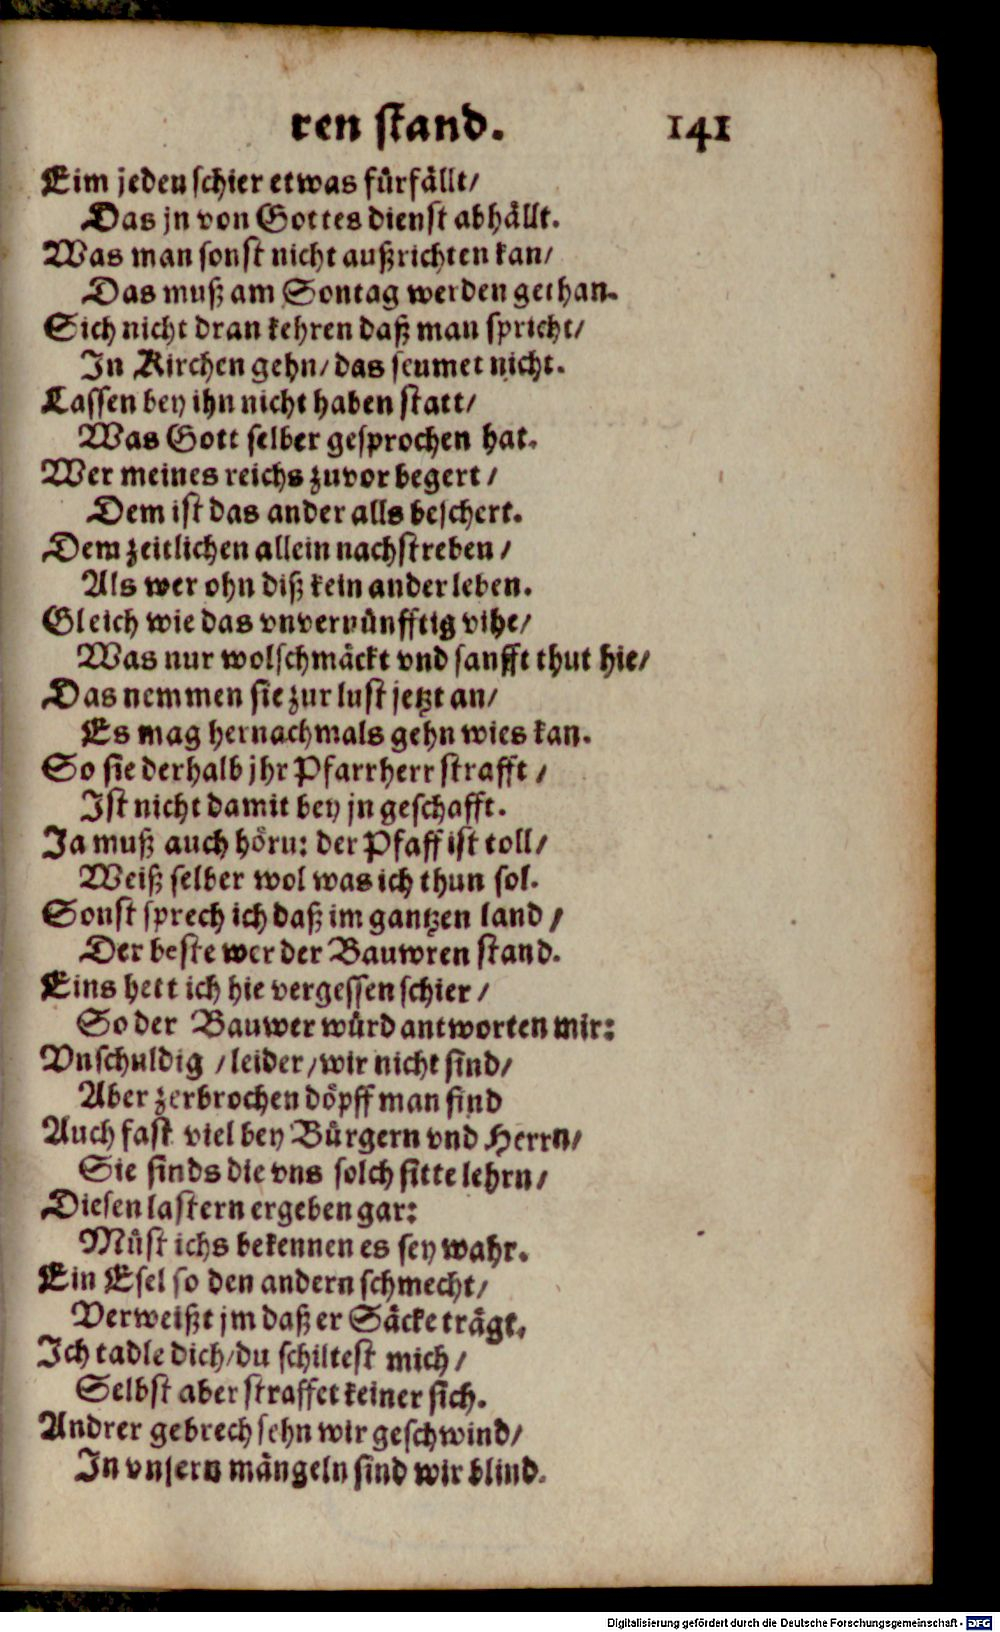 ren stand. 141
Eim jeden schier etwas fürfällt/
Das jn von Gottes dienst abhällt.
Was man sonst nicht außrichten kan/
Das muß am Sontag werden gethan.
Sich nicht dran kehren daß man spricht/
In Kirchen gehn/ das seumet nicht.
Lassen bey ihn nicht haben statt/
Was Gott selber gesprochen hat.
Wer meines reichs zuvor begert/
Dem ist das ander alls beschert.
Dem zeitlichen allein nachstreben/
Als wer ohn diß kein ander leben.
Gleich wie das vnvernünfftig vihe/
Was nur wolschmäckt vnd sanfft thut hie/
Das nemmen sie zur lust jetzt an/
Es mag hernachmals gehn wies kan.
So sie derhalb jhr Pfarrherr strafft/
Ist nicht damit bey jn geschafft.
Ja muß auch hörn: der Pfaff ist toll/
Weiß selber wol was ich thun sol.
Sonst sprech ich daß im gantzen land/
Der beste wer der Bauwren stand.
Eins hett ich hie vergessen schier/
So der Bauwer würd antworten mir:
Vnschuldig/ leider/ wir nicht sind/
Aber zerbrochen döpff man find
Auch fast viel bey Bürgern vnd Herrn/
Sie sinds die vns solch sitte lehrn/
Diesen lastern ergeben gar:
Müst ichs bekennen es sey wahr.
Ein Esel so den andern schmecht/
Verweißt jm daß er Säcke trägt.
Ich tadle dich/ du schiltest mich/
Selbst aber straffet keiner sich.
Andrer gebrech sehn wir geschwind/
In vnsern mängeln sind wir blind.
Digitalisierung gefördert durch die Deutsche Forschungsgemeinschaft - DFG